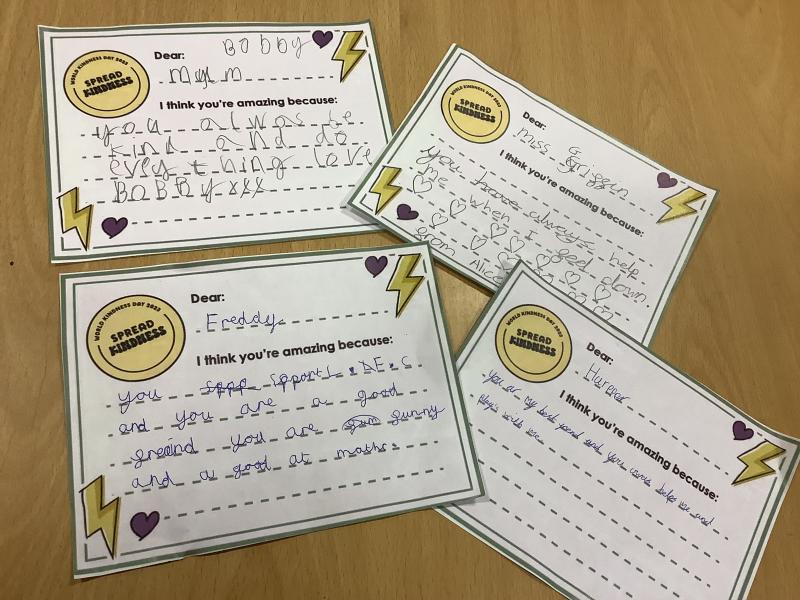 WORLD KINDNESS DAY 2023
SPREAD
KINDNESS
Dear: BOBBY
mum
I think you're amazing because:
you alwas te
kind and do
evey thing love
BOBBYxxx
WORLD KINDNESS DAY 2023
SPREAD
KINDNESS
Dear:
miss Griggin
I think you're amazing because:
you have always help
me when I feel down.
from Alice
WORLD KINDNESS DAY 2023
SPREAD
KINDNESS
Dear:
Freddy
I think you're amazing because:
you sppo spport L.DE.C
and you are a good
greind you are gunny
and a good at maths.
WORLD KINDNESS DAY 2023
SPREAD
KINDNESS
Dear:
Harper
I think you're amazing because:
you ar my best and you helps me and
me